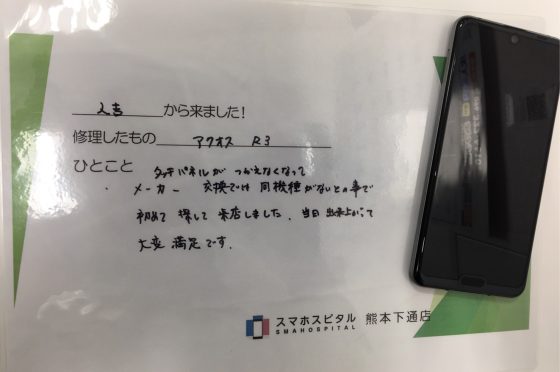 人吉 から来ました!
修理したもの アクオス R3
ひとこと タッチパネルが つかえなくなって
メーカー 交換では 同機種がないとの事で
初めて 探して 来店しました。当日 出来上がって
大変 満足です。
スマホスピタル 熊本下通店
SMAHOSPITAL